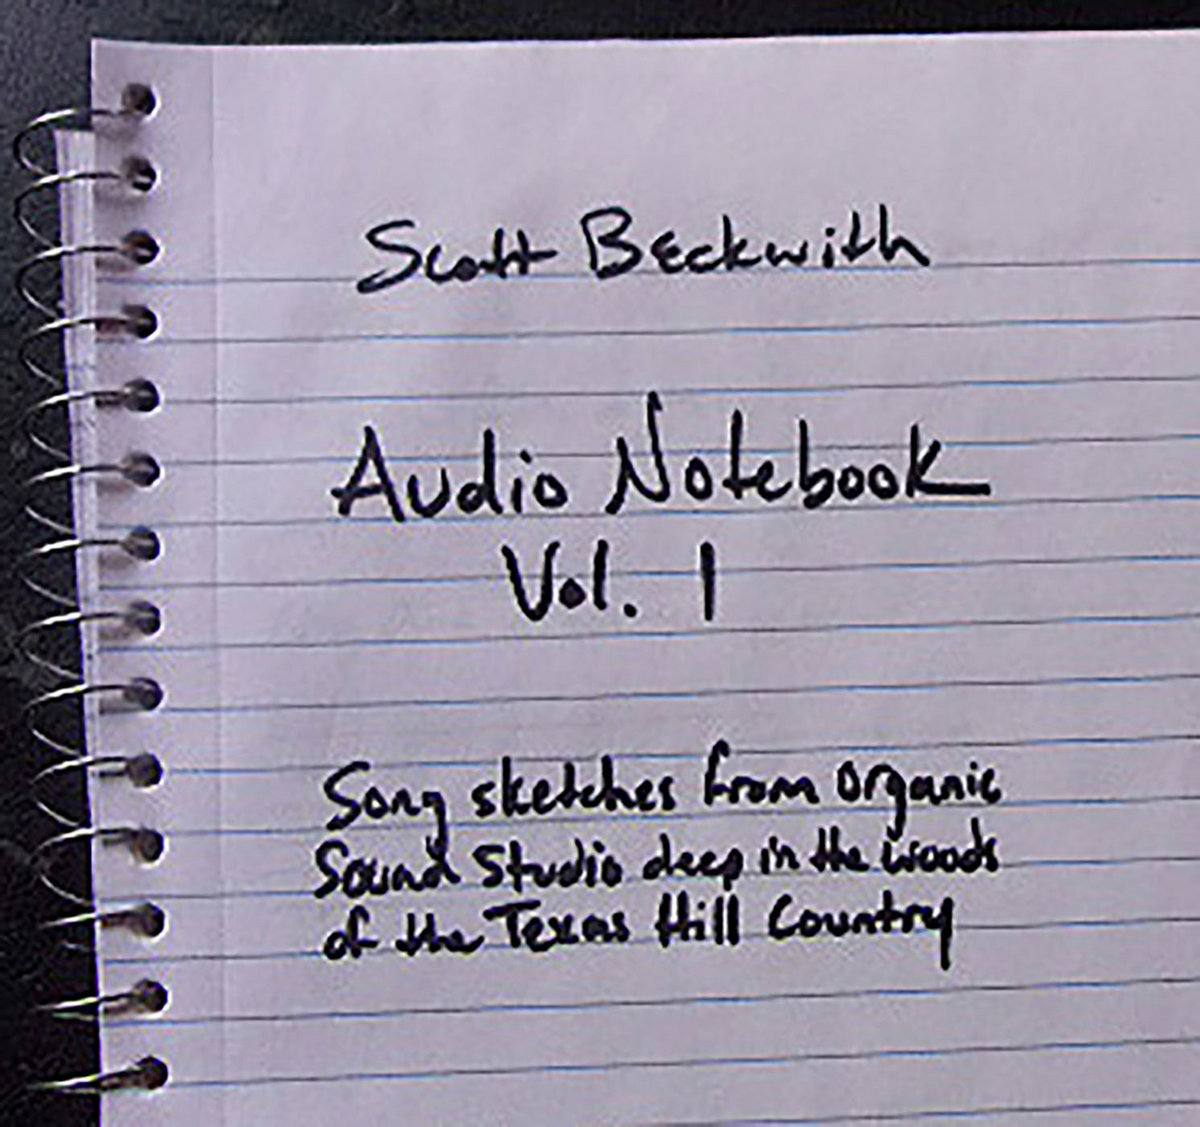 Scott Beckwith
Audio Notebook
Vol. 1
Song sketches from organic
Sound Studio deep in the woods
of the Texas Hill Country